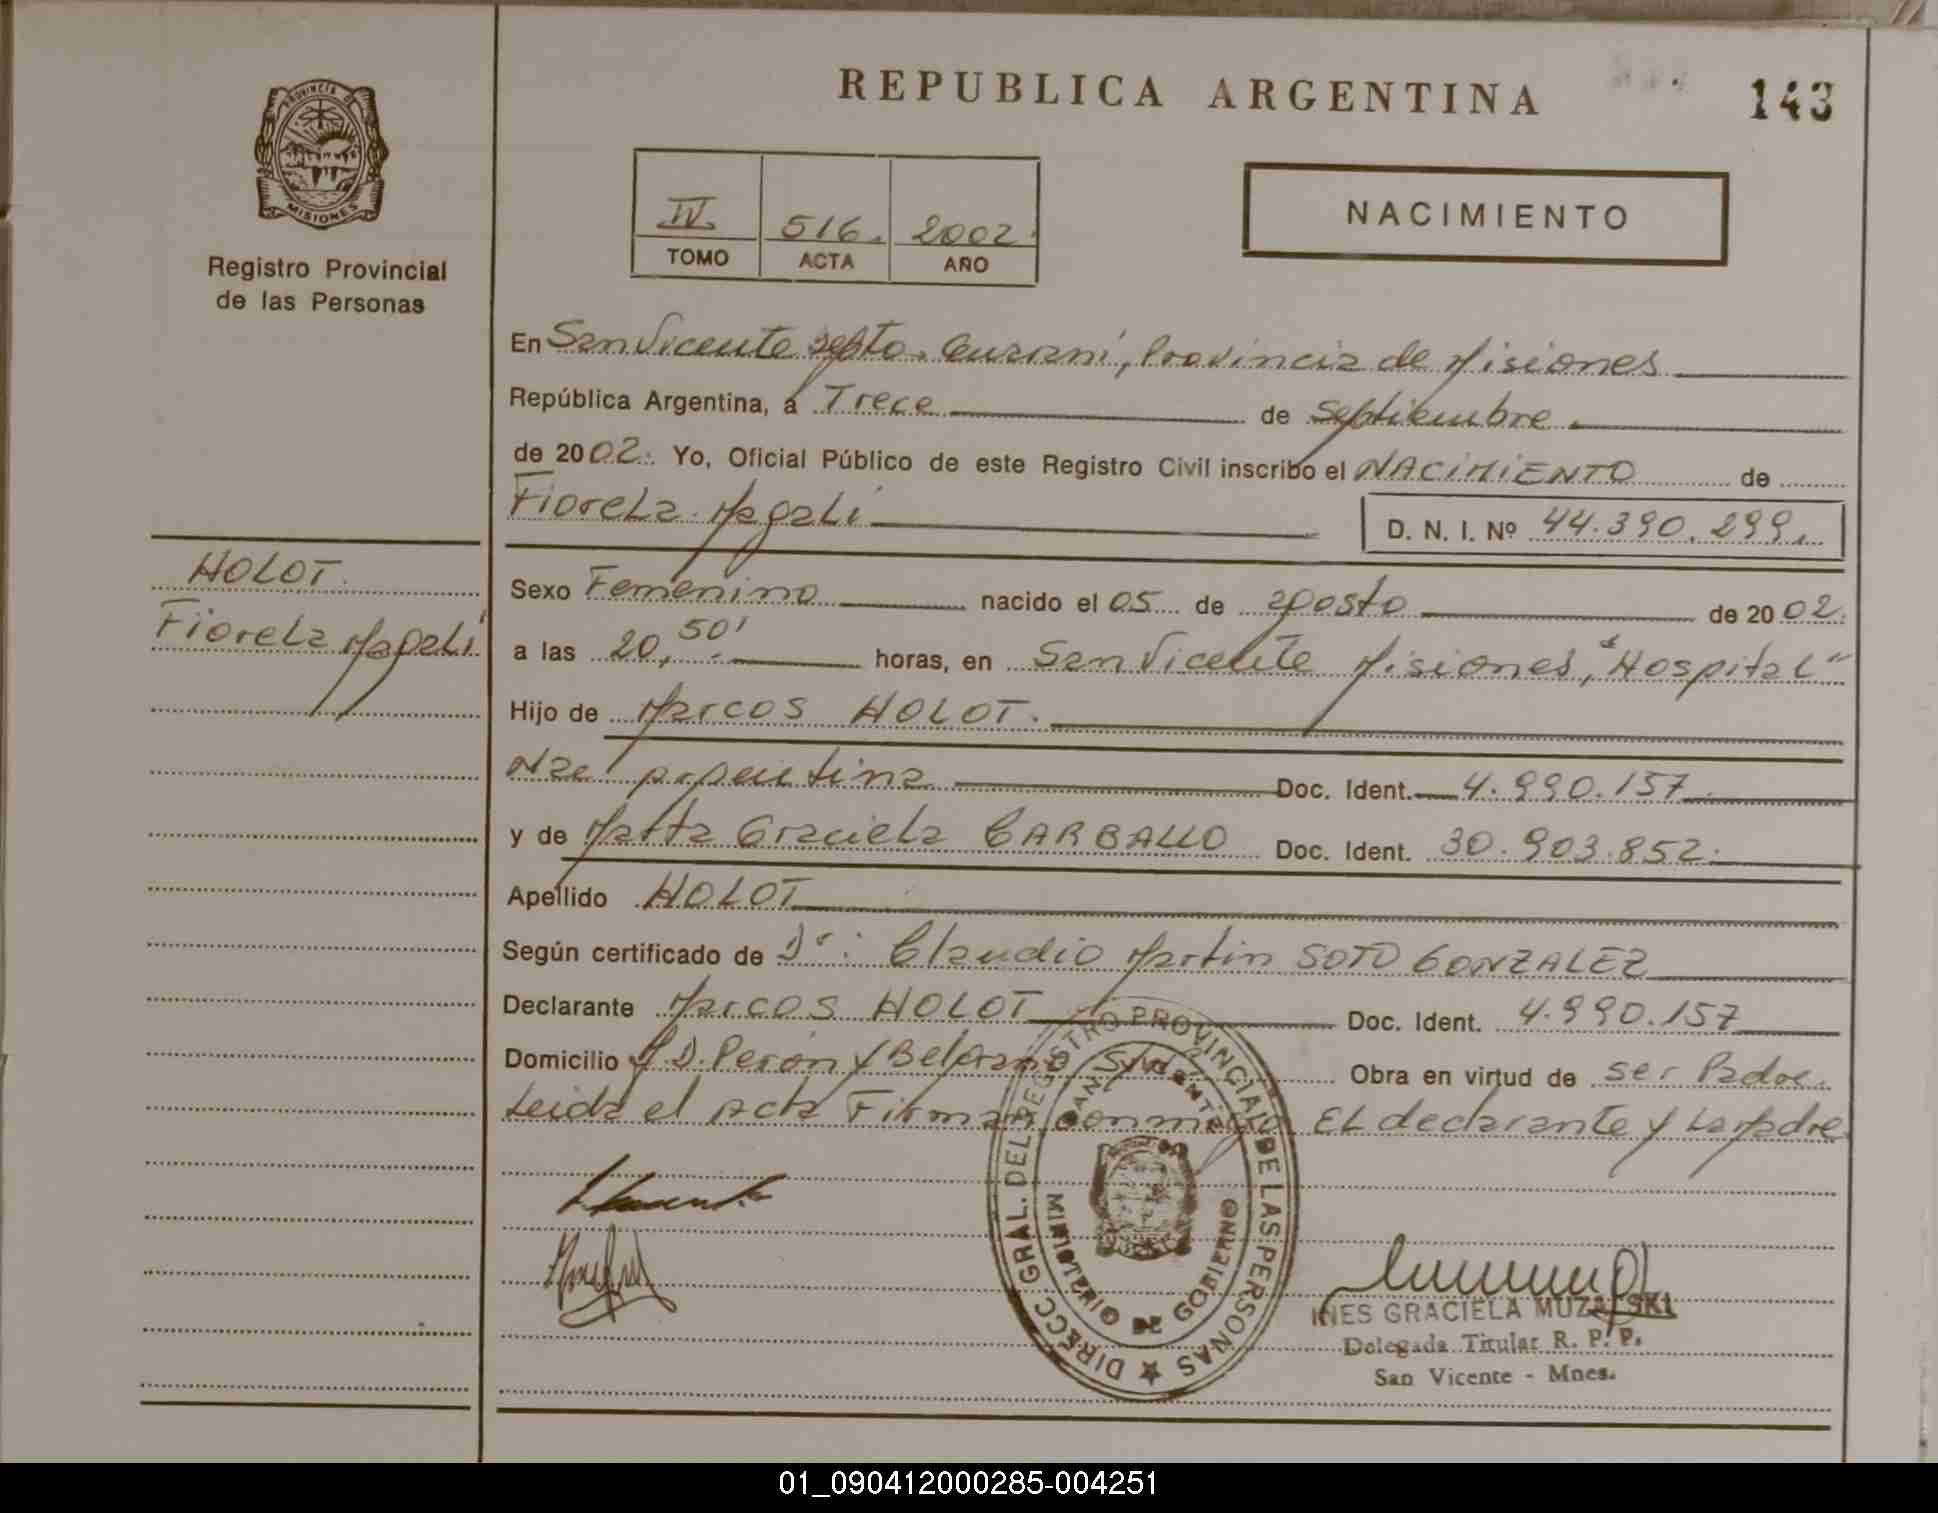 REPUBLICA ARGENTINA
143
PROVINCIA DE
MISIONES
Registro Provincial
de las Personas
IV. 516. 2002.
TOMO ACTA AÑO
NACIMIENTO
En San Vicente Depto. Guaraní, Provincia de Misiones
República Argentina, a Trece de Septiembre.
de 2002. Yo, Oficial Público de este Registro Civil inscribo el NACIMIENTO de
Fiorela Magalí D. N. I. Nº 44.390.299.
HOLOT.
Fiorela Magalí
Sexo Femenino nacido el 05 de agosto de 2002.
a las 20,50' horas, en San Vicente Misiones, "Hospital"
Hijo de Marcos HOLOT.
Nac argentina Doc. Ident. 4.990.157.
y de Marta Graciela CARBALLO Doc. Ident. 30.903.852.
Apellido HOLOT
Según certificado de Dr: Claudio Martin SOTO GONZALEZ
Declarante Marcos HOLOT Doc. Ident. 4.990.157
Domicilio J.D. Perón y Belgrano S/Nº Obra en virtud de ser Padre.
Leida el acta Firman conmigo EL declarante y La Madre
DIRECC GRAL. DEL REGISTRO PROVINCIAL DE LAS PERSONAS
SAN VICENTE
MINISTERIO DE GOBIERNO
INES GRACIELA
Delegada Titular R. P. P.
San Vicente - Mnes.
01_090412000285-004251